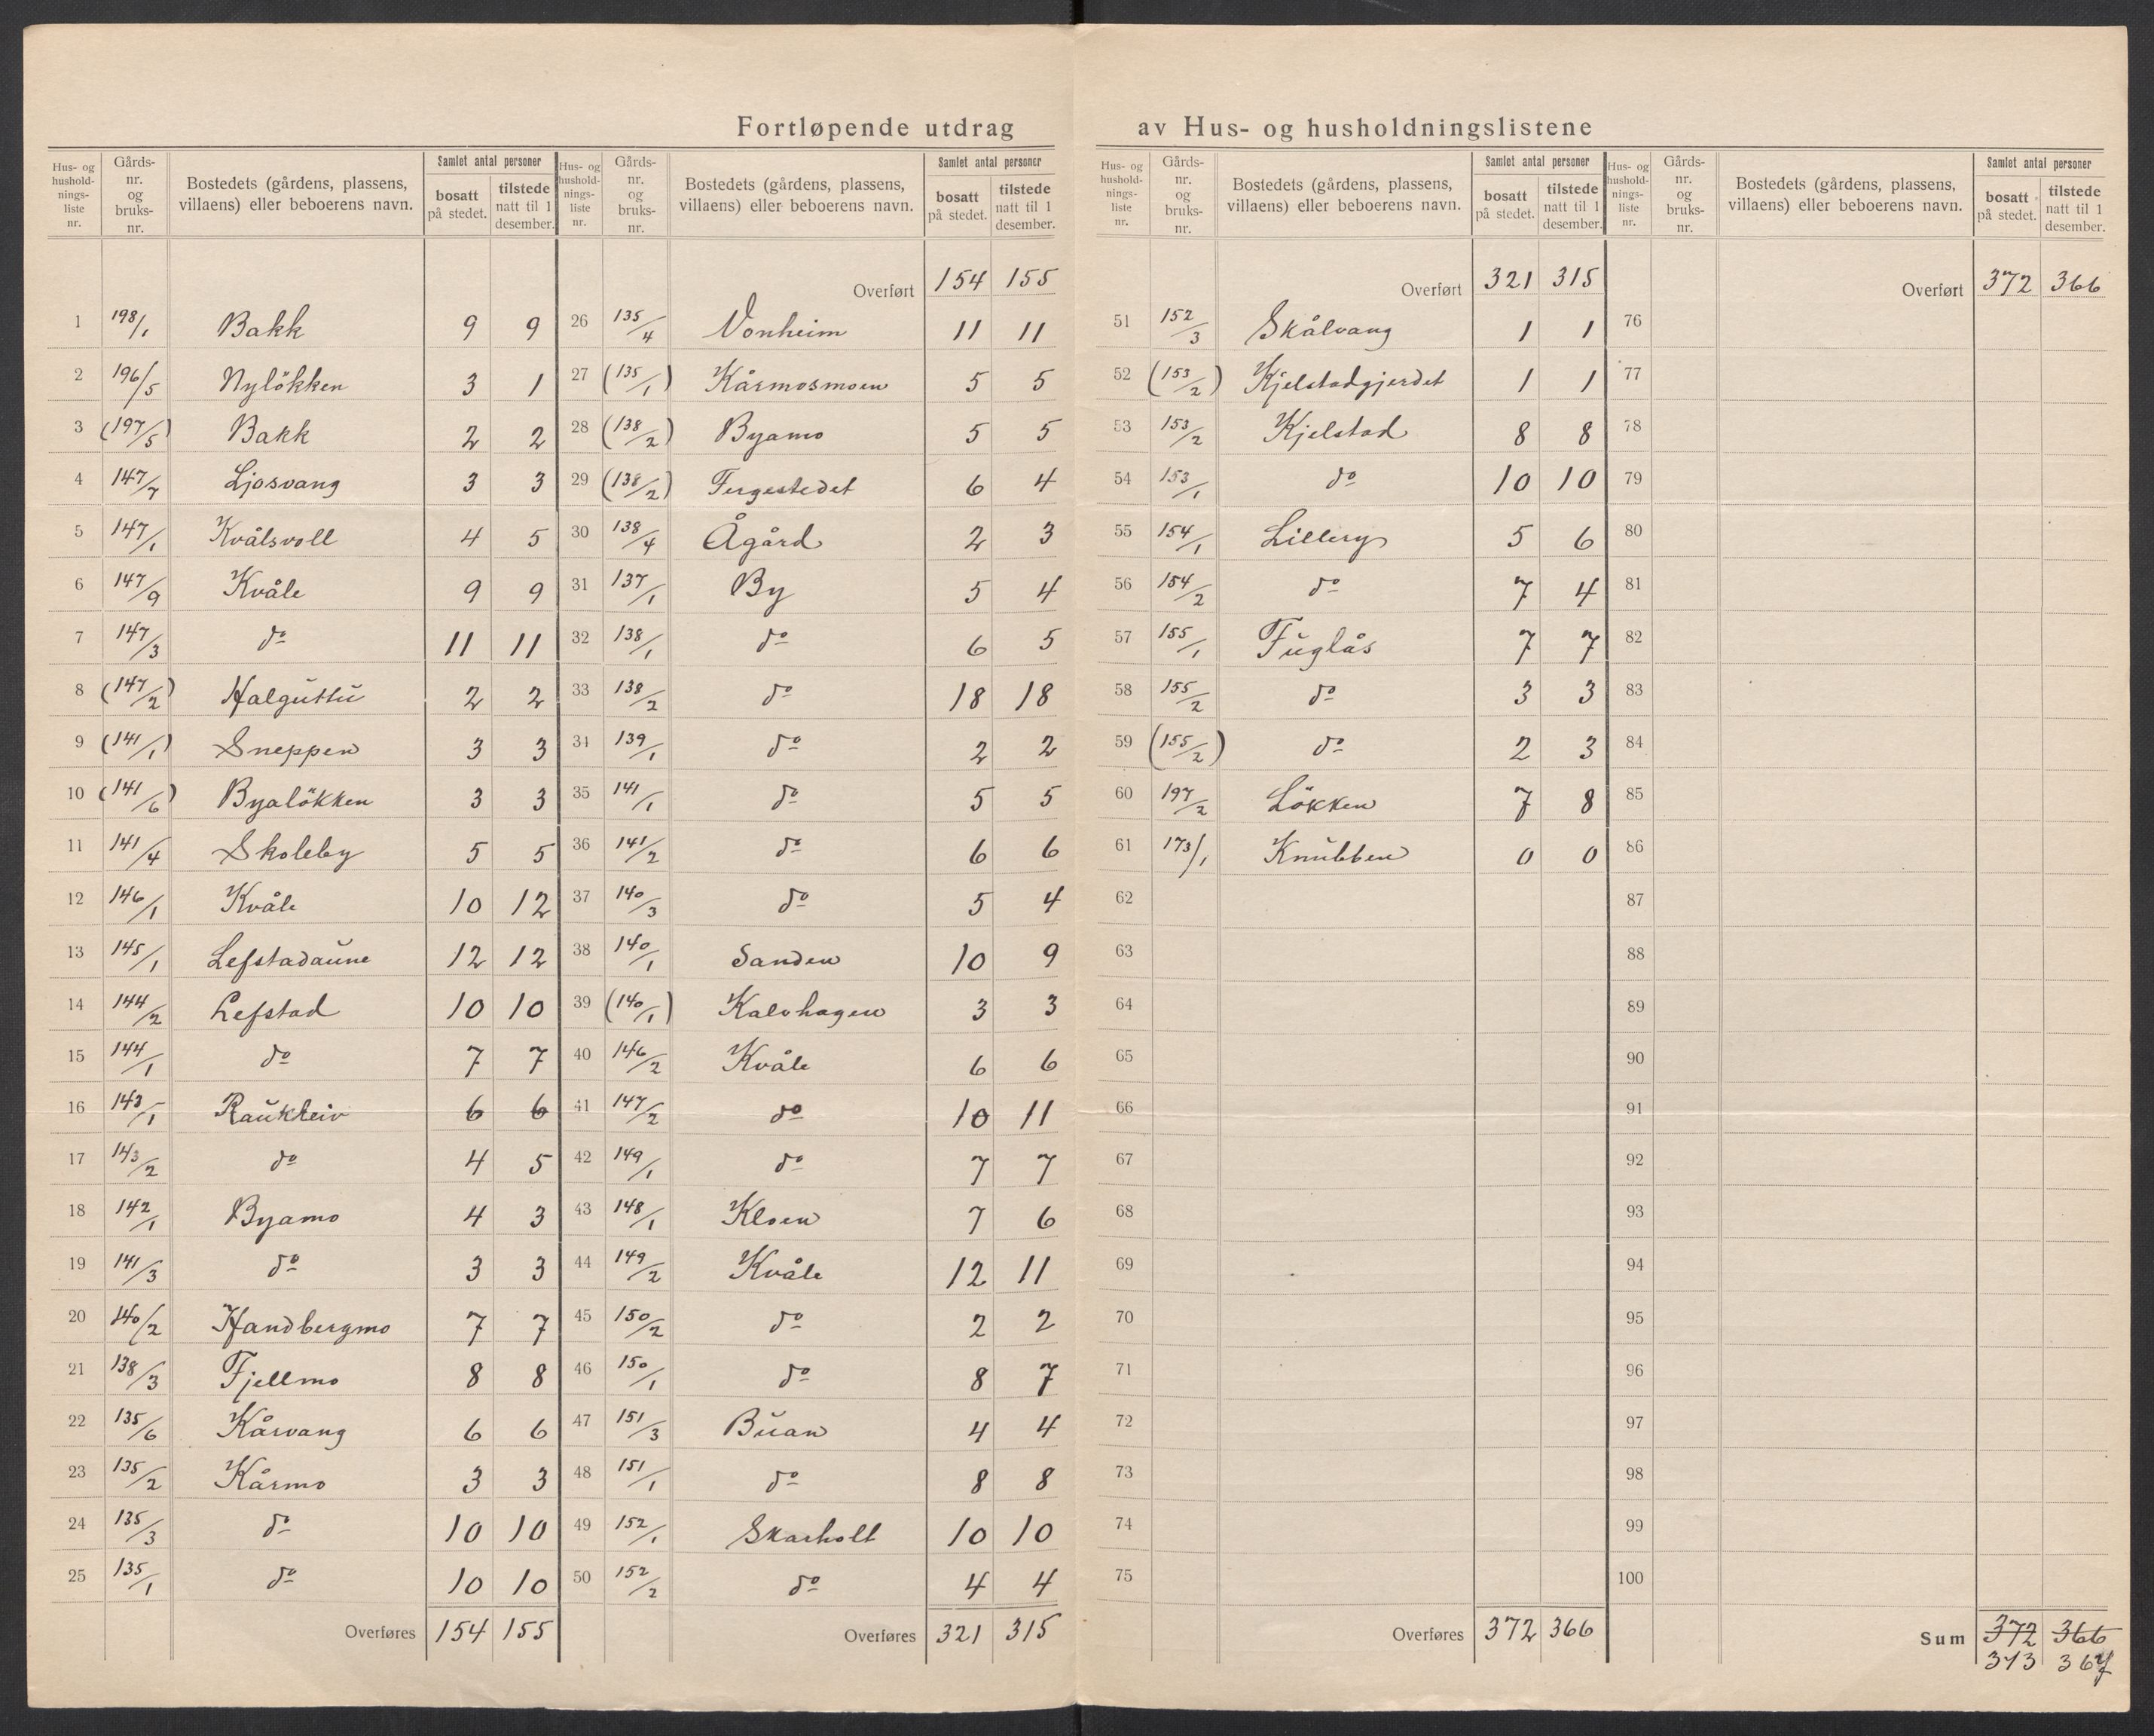 Fortløpende utdrag av Hus- og husholdningslistene
Hus- og husholdnings-liste nr. Gårds-nr. og bruks-nr. Bostedets (gårdens, plassens, villaens) eller beboerens navn. Samlet antal personer bosatt på stedet. tilstede natt til 1 desember.
1 198/1 Bakk 9 9
2 196/5 Nyløkken 3 1
3 (197/5) Bakk 2 2
4 147/7 Ljosvang 3 3
5 147/1 Kvålsvoll 4 5
6 147/9 Kvåle 9 9
7 147/3 do 11 11
8 (147/2) Halguttu 2 2
9 (141/1) Sneppen 3 3
10 (141/6) Byaløkken 3 3
11 141/4 Skoleby 5 5
12 146/1 Kvåle 10 12
13 145/1 Lefstadaune 12 12
14 144/2 Lefstad 10 10
15 144/1 do 7 7
16 143/1 Raukleiv 6 6
17 143/2 do 4 5
18 142/1 Byamo 4 3
19 141/3 do 3 3
20 140/2 Handbergmo 7 7
21 138/3 Fjellmo 8 8
22 135/6 Kårvang 6 6
23 135/2 Kårmo 3 3
24 135/3 do 10 10
25 135/1 do 10 10
Overføres 154 155
Hus- og husholdnings-liste nr. Gårds-nr. og bruks-nr. Bostedets (gårdens, plassens, villaens) eller beboerens navn. Samlet antal personer bosatt på stedet. tilstede natt til 1 desember.
Overført 154 155
26 135/4 Vonheim 11 11
27 (135/1) Kårmosmoen 5 5
28 (138/2) Byamo 5 5
29 (138/2) Fergestedet 6 4
30 138/4 Ågård 2 3
31 137/1 By 5 4
32 138/1 do 6 5
33 138/2 do 18 18
34 139/1 do 2 2
35 141/1 do 5 5
36 141/2 do 6 6
37 140/3 do 5 4
38 140/1 Sanden 10 9
39 (140/1) Kalvhagen 3 3
40 146/2 Kvåle 6 6
41 147/2 do 10 11
42 149/1 do 7 7
43 148/1 Kloen 7 6
44 149/2 Kvåle 12 11
45 150/2 do 2 2
46 150/1 do 8 7
47 151/3 Buan 4 4
48 151/1 do 8 8
49 152/1 Skarholt 10 10
50 152/2 do 4 4
Overføres 321 315
Hus- og husholdnings-liste nr. Gårds-nr. og bruks-nr. Bostedets (gårdens, plassens, villaens) eller beboerens navn. Samlet antal personer bosatt på stedet. tilstede natt til 1 desember.
Overført 321 315
51 152/3 Skålvang 1 1
52 (153/2) Kjelstadgjerdet 1 1
53 153/2 Kjelstad 8 8
54 153/1 do 10 10
55 154/1 Lillery 5 6
56 154/2 do 7 4
57 155/1 Fuglås 7 7
58 155/2 do 3 3
59 (155/2) do 2 3
60 197/2 Løkken 7 8
61 173/1 Knubben 0 0
62
63
64
65
66
67
68
69
70
71
72
73
74
75
Overføres 372 366
Hus- og husholdnings-liste nr. Gårds-nr. og bruks-nr. Bostedets (gårdens, plassens, villaens) eller beboerens navn. Samlet antal personer bosatt på stedet. tilstede natt til 1 desember.
Overført 372 366
76
77
78
79
80
81
82
83
84
85
86
87
88
89
90
91
92
93
94
95
96
97
98
99
100
Sum 372 366
373 367